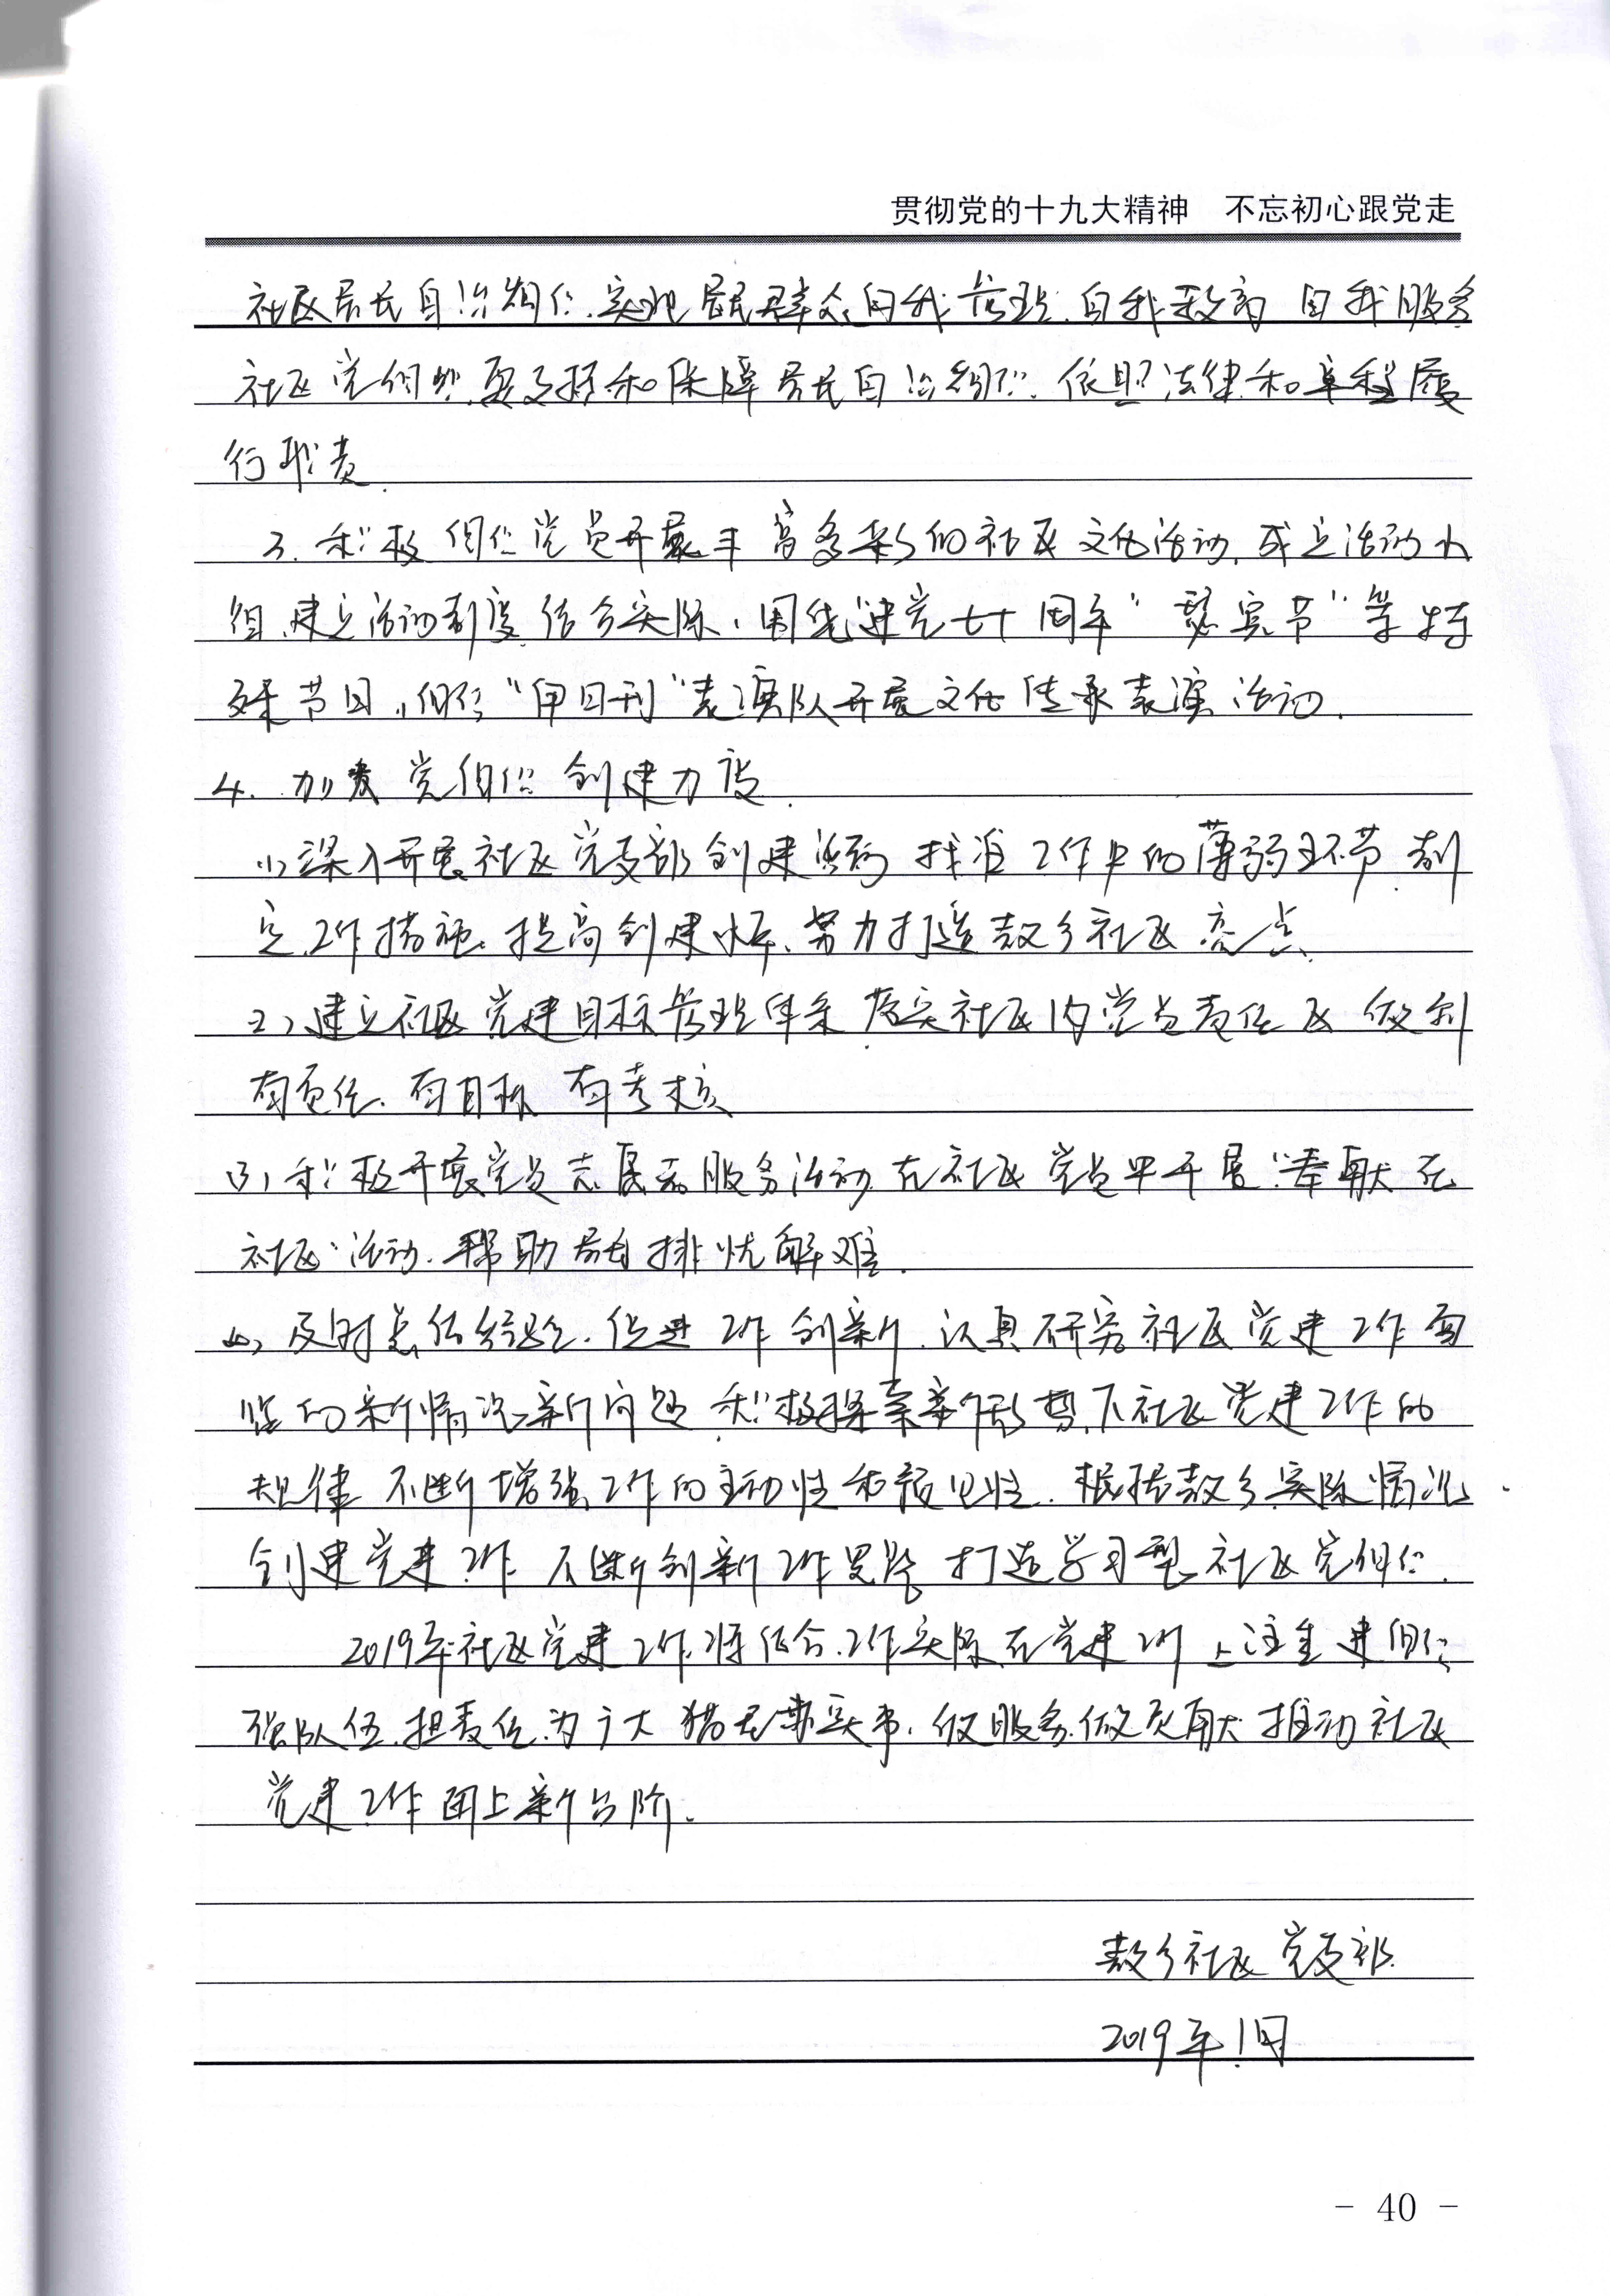 贯彻党的十九大精神 不忘初心跟党走
社区居民自治组织.实现居民群众自我管理.自我教育 自我服务
社区党组织.要支持和保障居民自治组织.依照法律和章程履
行职责.
3.积极组织党员开展丰富多彩的社区文化活动.成立活动小
组.建立活动制度.结合实际,围绕"建党七十周年""瑟宾节"等特
殊节日,组织"伊日刊"表演队开展文化传承表演活动.
4.加大党组织创建力度.
(1)深入开展社区党支部创建活动 找准工作中的薄弱环节.制
定工作措施.提高创建水平.努力打造敖乡社区亮点.
(2)建立社区党建目标管理体系.落实社区内党员责任区 做到
有责任.有目标 有考核
(3)积极开展党员志愿者服务活动.在社区党员中开展"奉献在
社区"活动.帮助居民排忧解难.
(4)及时总结经验.促进工作创新.认真研究社区党建工作面
临的新情况新问题.积极探索新形势下社区党建工作的
规律 不断增强工作的主动性和预见性.根据敖乡实际情况
创建党建工作 不断创新工作思路 打造学习型社区党组织.
2019年社区党建工作将结合工作实际在党建工作上注重建组织
强队伍.担责任.为广大猎民办实事.做服务.做贡献 推动社区
党建工作再上新台阶.
敖乡社区党支部
2019年1月
- 40 -